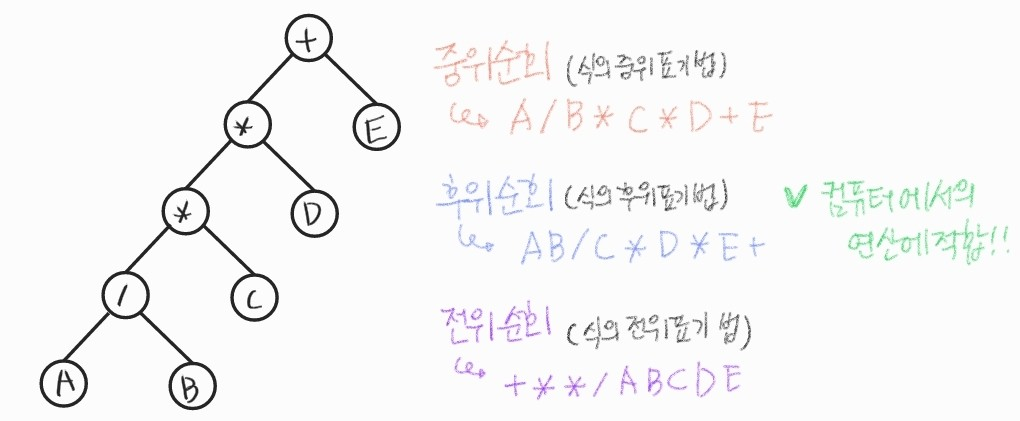 +
*
E
*
D
/
C
A
B
중위순회 (식의 중위표기법)
↳ A/B*C*D+E
후위순회 (식의 후위표기법)
↳ AB/C*D*E+
✓ 컴퓨터에서의
연산에 적합!!
전위순회 (식의 전위표기법)
↳ +**/ABCDE